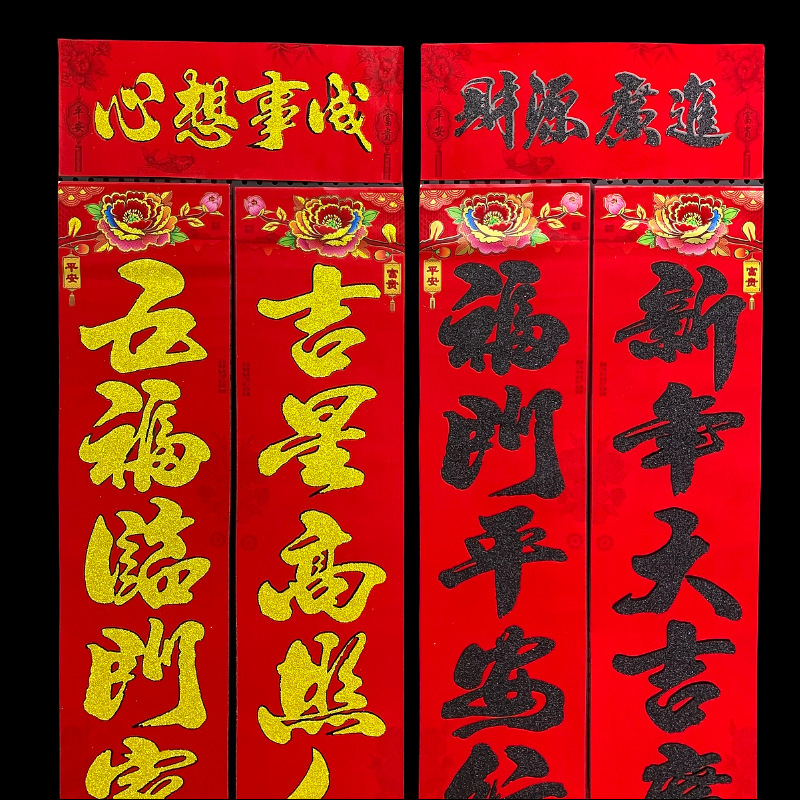 心想事成
吉星高照
五福臨門
平安
富贵
財源廣進
新年大吉
福門平安
平安
富贵